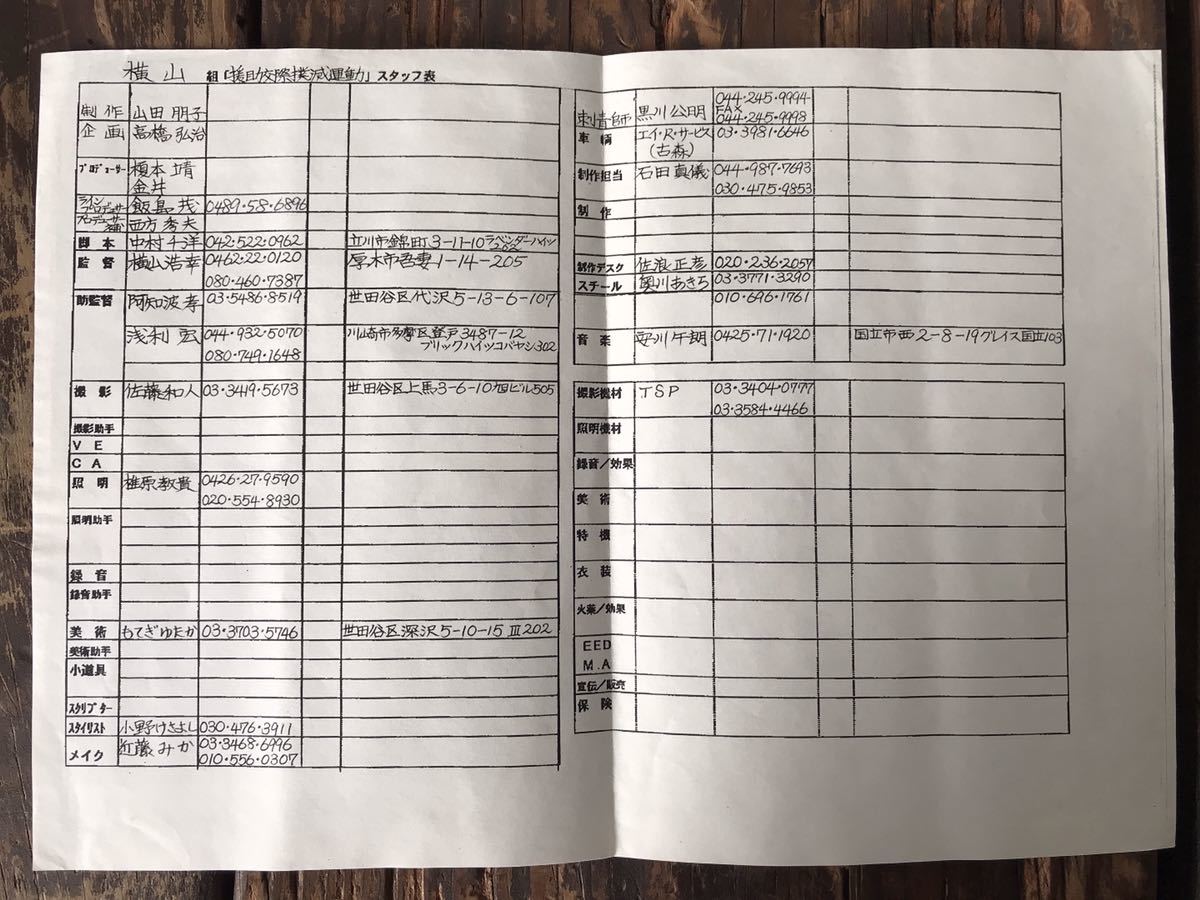 横山 組「援助交際撲滅運動」スタッフ表
制作 山田 朋子
企画 高橋 弘治
プロデューサー 榎本 靖
金井
ラインプロデューサー 飯島 茂 0489・58・6896
プロデューサー 西方 秀夫
脚本 中村 千洋 042・522・0962 立川市錦町3-11-10ラベンダーハイツ202
監督 横山浩幸 0462・22・0120 厚木市吾妻1-14-205
080・460・7387
助監督 阿知波 孝 03・5486・8519 世田谷区代沢5-13-6-107
浅利 宏 044・932・5070 川崎市多摩区登戸3487-12
080・749・1648 ブリックハイツコバヤシ302
撮影 佐藤和人 03・3419・5673 世田谷区上馬3-6-10旭ビル505
撮影助手
VE
CA
照明 椎原教貴 0426・27・9590
020・554・8930
照明助手
録音
録音助手
美術 もてぎゆたか 03・3703・5746 世田谷区深沢5-10-15 Ⅲ202
美術助手
小道具
スクリプター
スタイリスト 小野けさよし 030・476・3911
メイク 近藤みか 03・3468・6996
010・556・0307
刺青師 黒川公明 044・245・9994
FAX
044・245・9998
車輌 エイ・R・サービス 03・3981・6646
(古森)
制作担当 石田真儀 044・987・7693
030・475・9853
制作
制作デスク 佐浪正彦 020・236・2057
スチール 奥川あきら 03・3771・3290
010・696・1761
音楽 安川午朗 0425・71・1920 国立市西2-8-19グレイス国立103
撮影機材 JSP 03・3404・0777
03・3584・4466
照明機材
録音/効果
美術
特機
衣装
火薬/効果
EED
M.A
宣伝/販売
保険